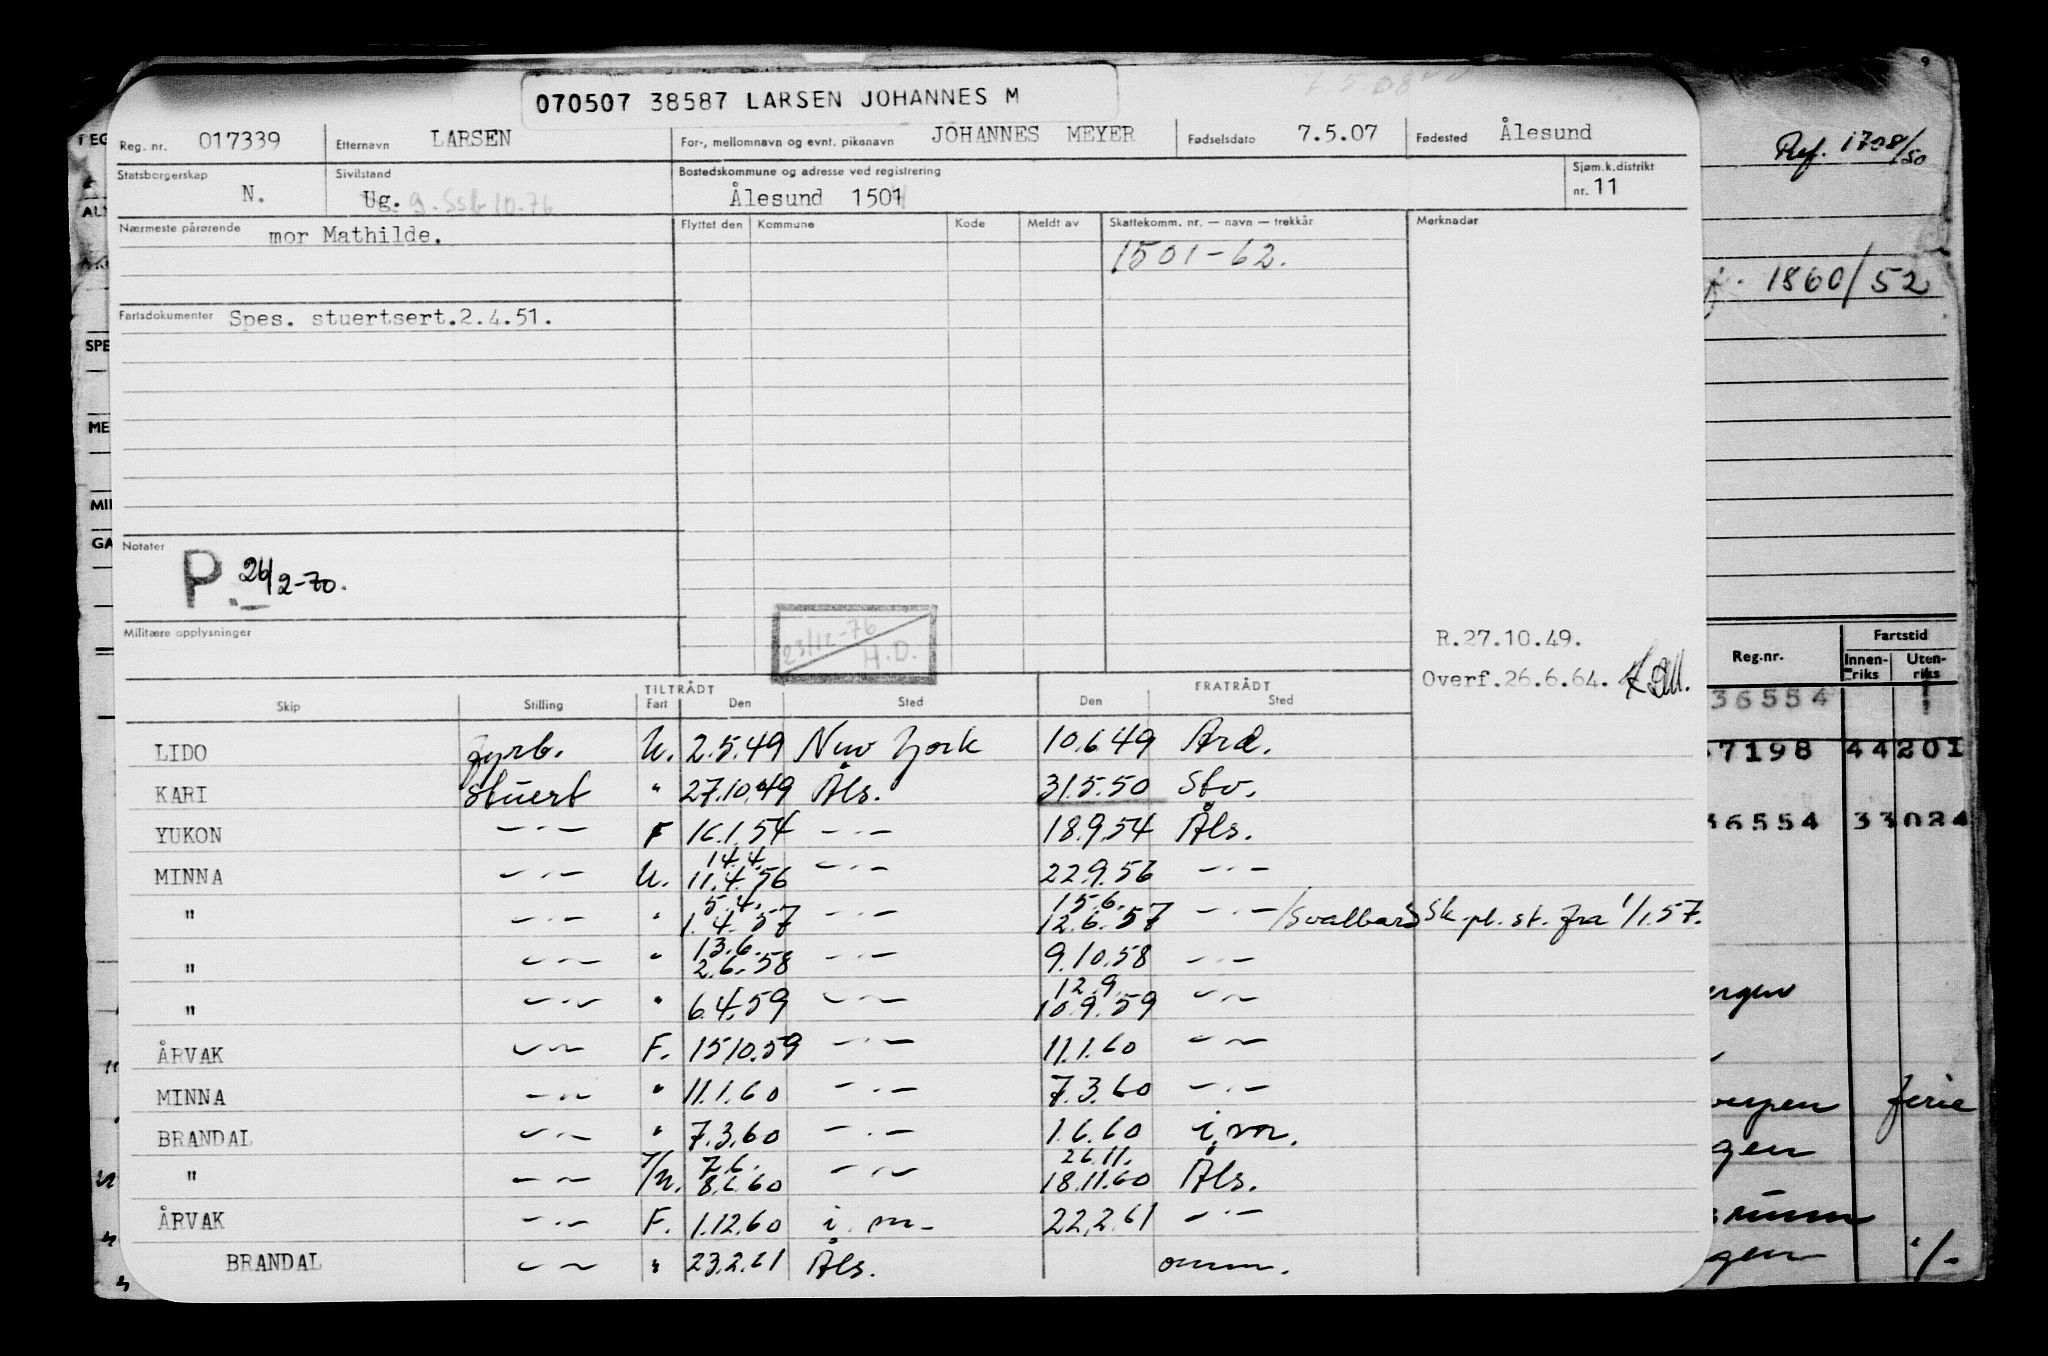 070507 38587 LARSEN JOHANNES M
Reg. nr. 017339 Etternavn LARSEN For-, mellomnavn og evnt. pikenavn JOHANNES MEYER Fødselsdato 7.5.07 Fødested Ålesund
Statsborgerskap N. Sivilstand Ug. g. Ssb 10-76 Bostedskommune og adresse ved registrering Ålesund 1501 Sjøm.k.distrikt nr. 11
Nærmeste pårørende mor Mathilde. Flyttet den Kommune Kode Meldt av Skattekomm. nr. — navn — trekkår Merknader
1501-62.
Fartsdokumenter Spes. stuertsert.2.4.51.
Notater
P 26/2-70.
Militære opplysninger
23/12-76
H.D.
R.27.10.49.
Overf.26.6.64.
TILTRÅDT FRATRÅDT
Skip Stilling Fart Den Sted Den Sted
LIDO fyrb. U. 2.5.49 New York 10.6.49 Ard.
KARI Stuert " 27.10.49 Åls. 31.5.50 Stv.
YUKON —·— F 16.1.54 —·— 18.9.54 Åls.
14.4.
MINNA —·— U. 11.4.56 —·— 22.9.56 —·—
5.4. 15.6.
" —·— " 1.4.57 —·— 12.6.57 —·— /Svalbard Sk.pl. st. fra 1/1.57.
13.6.
" —·— " 2.6.58 —·— 9.10.58 —·—
12.9.
" —·— " 6.4.59 —·— 10.9.59 —·—
ÅRVAK —·— F. 15.10.59 —·— 11.1.60 —·—
MINNA —·— " 11.1.60 —·— 7.3.60 —·—
BRANDAL —·— " 7.3.60 —·— 1.6.60 i.m.
7.6. 26.11.
" —·— /U. 8.6.60 —·— 18.11.60 Åls.
ÅRVAK —·— F. 1.12.60 i.m. 22.2.61 —·—
BRANDAL —·— " 23.2.61 Åls. omm.
Ref. 1708/50
1860/52
SPE
ME
MIL
GA
Reg.nr. Fartstid
Innenriks Utenriks
36554
7198 44 201
36554 33 024
ferie